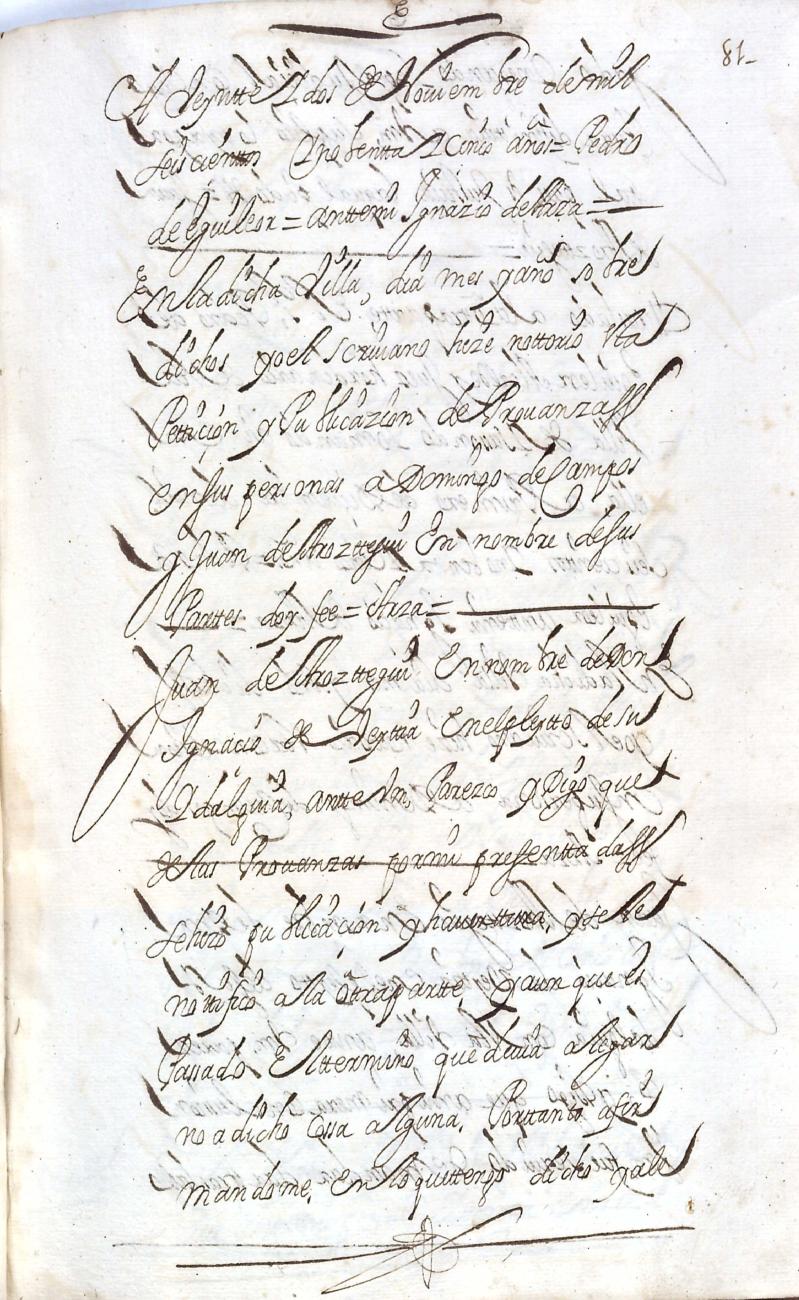 81
A Veyntte y dos de Nouiembre de mil
seiscientos y nobentta y cinco años = Pedro
de eguileor = anttemi Ygnazio de Arza =
En la dicha Villa, dia mes y año sobre
dichos yo el scriuano hize nottorio esta
Petticion y Publicazion de Prouanzass
en sus personas a Domingo de Campos
y Juan de Arozttegui En nombre de sus
Parttes doy fee = Arza =
Juan de Arozttegui En nombre de Don
Ygnacio de Vertiz En el pleytto de su
Ydalguia, antte Vm, Parezco y Digo que
de las Prouanzas por mi pressenttadass
se hizo publicacion y y se le
nottifico a la otra partte, y aunque es
Passado El ttermino, que deuia alegar
no a dicho cossa alguna, Porttanto afir
mandome, En lo que ttengo dicho y ale